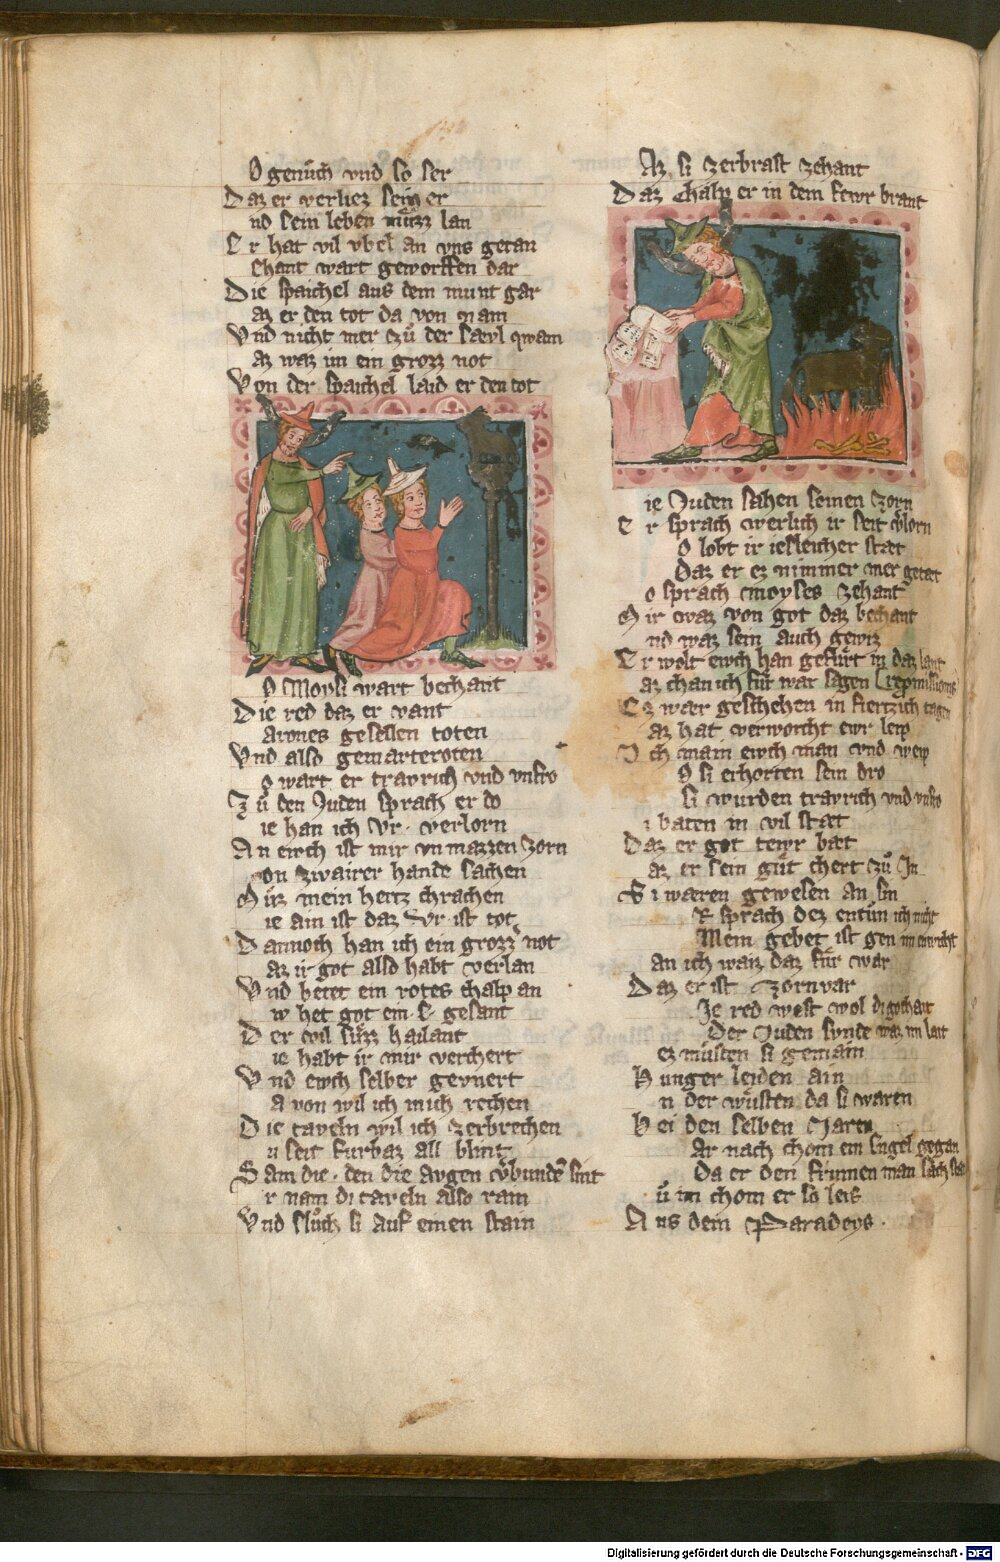 O genuch vnd so ser
Daz er verliez sein er
nd sein leben muzz lan
Er hat vil vbel an vns getan
ehant wart geworffen dar
Die spaichel aus dem munt gar
az er den tot da von nam
Vnd nicht mer czů der saeyl qwam
az waz im ein grozz not
Von der spaichel laid er den tot
O Moysi wart bechant
Die red daz er vant
arones gesellen toten
Vnd also gemarteroten
o wart er travrich vnd vnfro
Zů den Juden sprach er do
ie han ich Vr · verlorn
An ewch ist mir vnmazzen zorn
on zwairer hande sachen
Můz mein hertz chrachen
ie ain ist daz Vr ist tot
Dannoch han ich ein grozz not
az ir got also habt verlan
Vnd betet ein rotes chalp an
w het got ein · e · gesant
Der wil sůzz hailant
ie habt ir mir verchert
Vnd ewch selber gevnert
a von wil ich mich rechen
Die taveln wil ich zerbrechen
u seit furbaz all blint
Sam die · den die avgen v̄bundē sint
r nam di taveln also ram
Vnd slůch si auf einen stain
Az si zerbrast zehant
Daz Chalp er in dem fewr brant
ie Juden sahen seinen zorn
Er sprach werlich ir seit v̄lorn
O lobt ir iesleicher staet
Daz er ez nimmer mer getaet
o sprach moyses zehant
Mir waz von got daz bechant
nd waz sein auch gewiz
Er wolt ewch han gefůrt in daz lant
az chan ich für war sagen repmissionis
Ez waer geschehen in fiertzich tagen
az hat verworcht ewr leip
Ich main ewch man vnd weip
O si erhorten sein dro
si wurden travrich vnd vnfro
i baten in vil staet
Daz er got tewr baet
az er sein gůt chert zů In
Si waeren gewesen an sin
R sprach dez entůn ich nicht
Mein gebet ist gen im enwicht
an ich waiz daz fůr war
Daz er ist zornvar
Je red west wol di gothait
Der Juden sunde waz im lait
ez můsten si gemain
Hunger leiden ain
n der wůsten da si waren
Bei den selben Jaren
ar nach chom ein Engel gegan
Da er den frumen man sach stan
ů im chom er so leis
Aus dem Paradeys ·
Digitalisierung gefördert durch die Deutsche Forschungsgemeinschaft - DFG